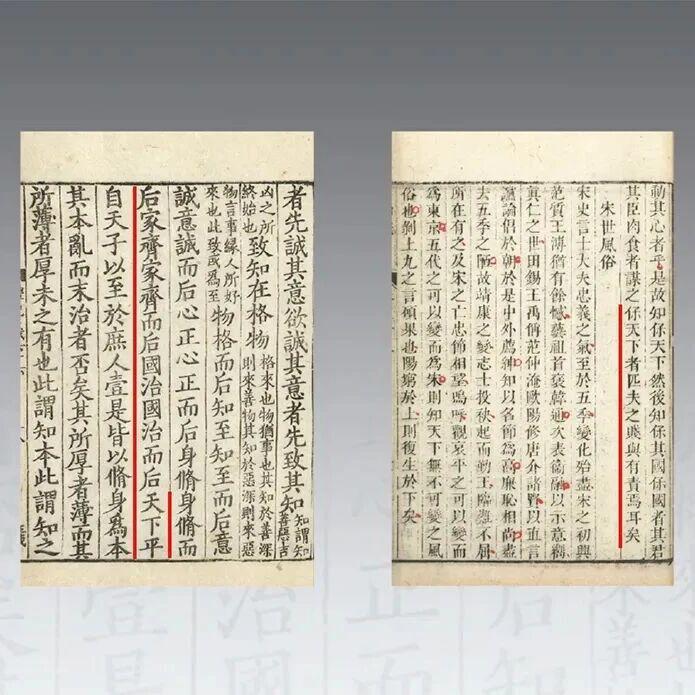 者先誠其意欲誠其意者先致其知知謂知善惡吉
凶之所終始也致知在格物格來也物猶事也其知於善深則來善物其知於惡深則來惡
物言事緣人所好來也此致或為至物格而后知至知至而后意
誠意誠而后心正心正而后身脩身脩而
后家齊家齊而后國治國治而后天下平
自天子以至於庶人壹是皆以脩身為本
其本亂而末治者否矣其所厚者薄而其
所薄者厚未之有也此謂知本此謂知之
勸其心者乎是故知保天下然後知保其國保國者其君
其臣肉食者謀之保天下者匹夫之賤與有責焉耳矣
宋世風俗
宋史言士大夫忠義之氣至於五季變化殆盡宋之初興
范質王溥猶有餘憾藝祖首褒韓通次表衛融以示意嚮
真仁之世田錫王禹偁范仲淹歐陽修唐介諸賢以直言
讜論倡於朝於是中外薦紳知以名節為高廉恥相尚盡
去五季之陋故靖康之變志士投袂起而勤王臨難不屈
所在有之及宋之亡忠節相望嗚呼觀哀平之可以變而
為東京五代之可以變而為宋則知天下無不可變之風
俗也剝上九之言碩果也陽窮於上則復生於下矣